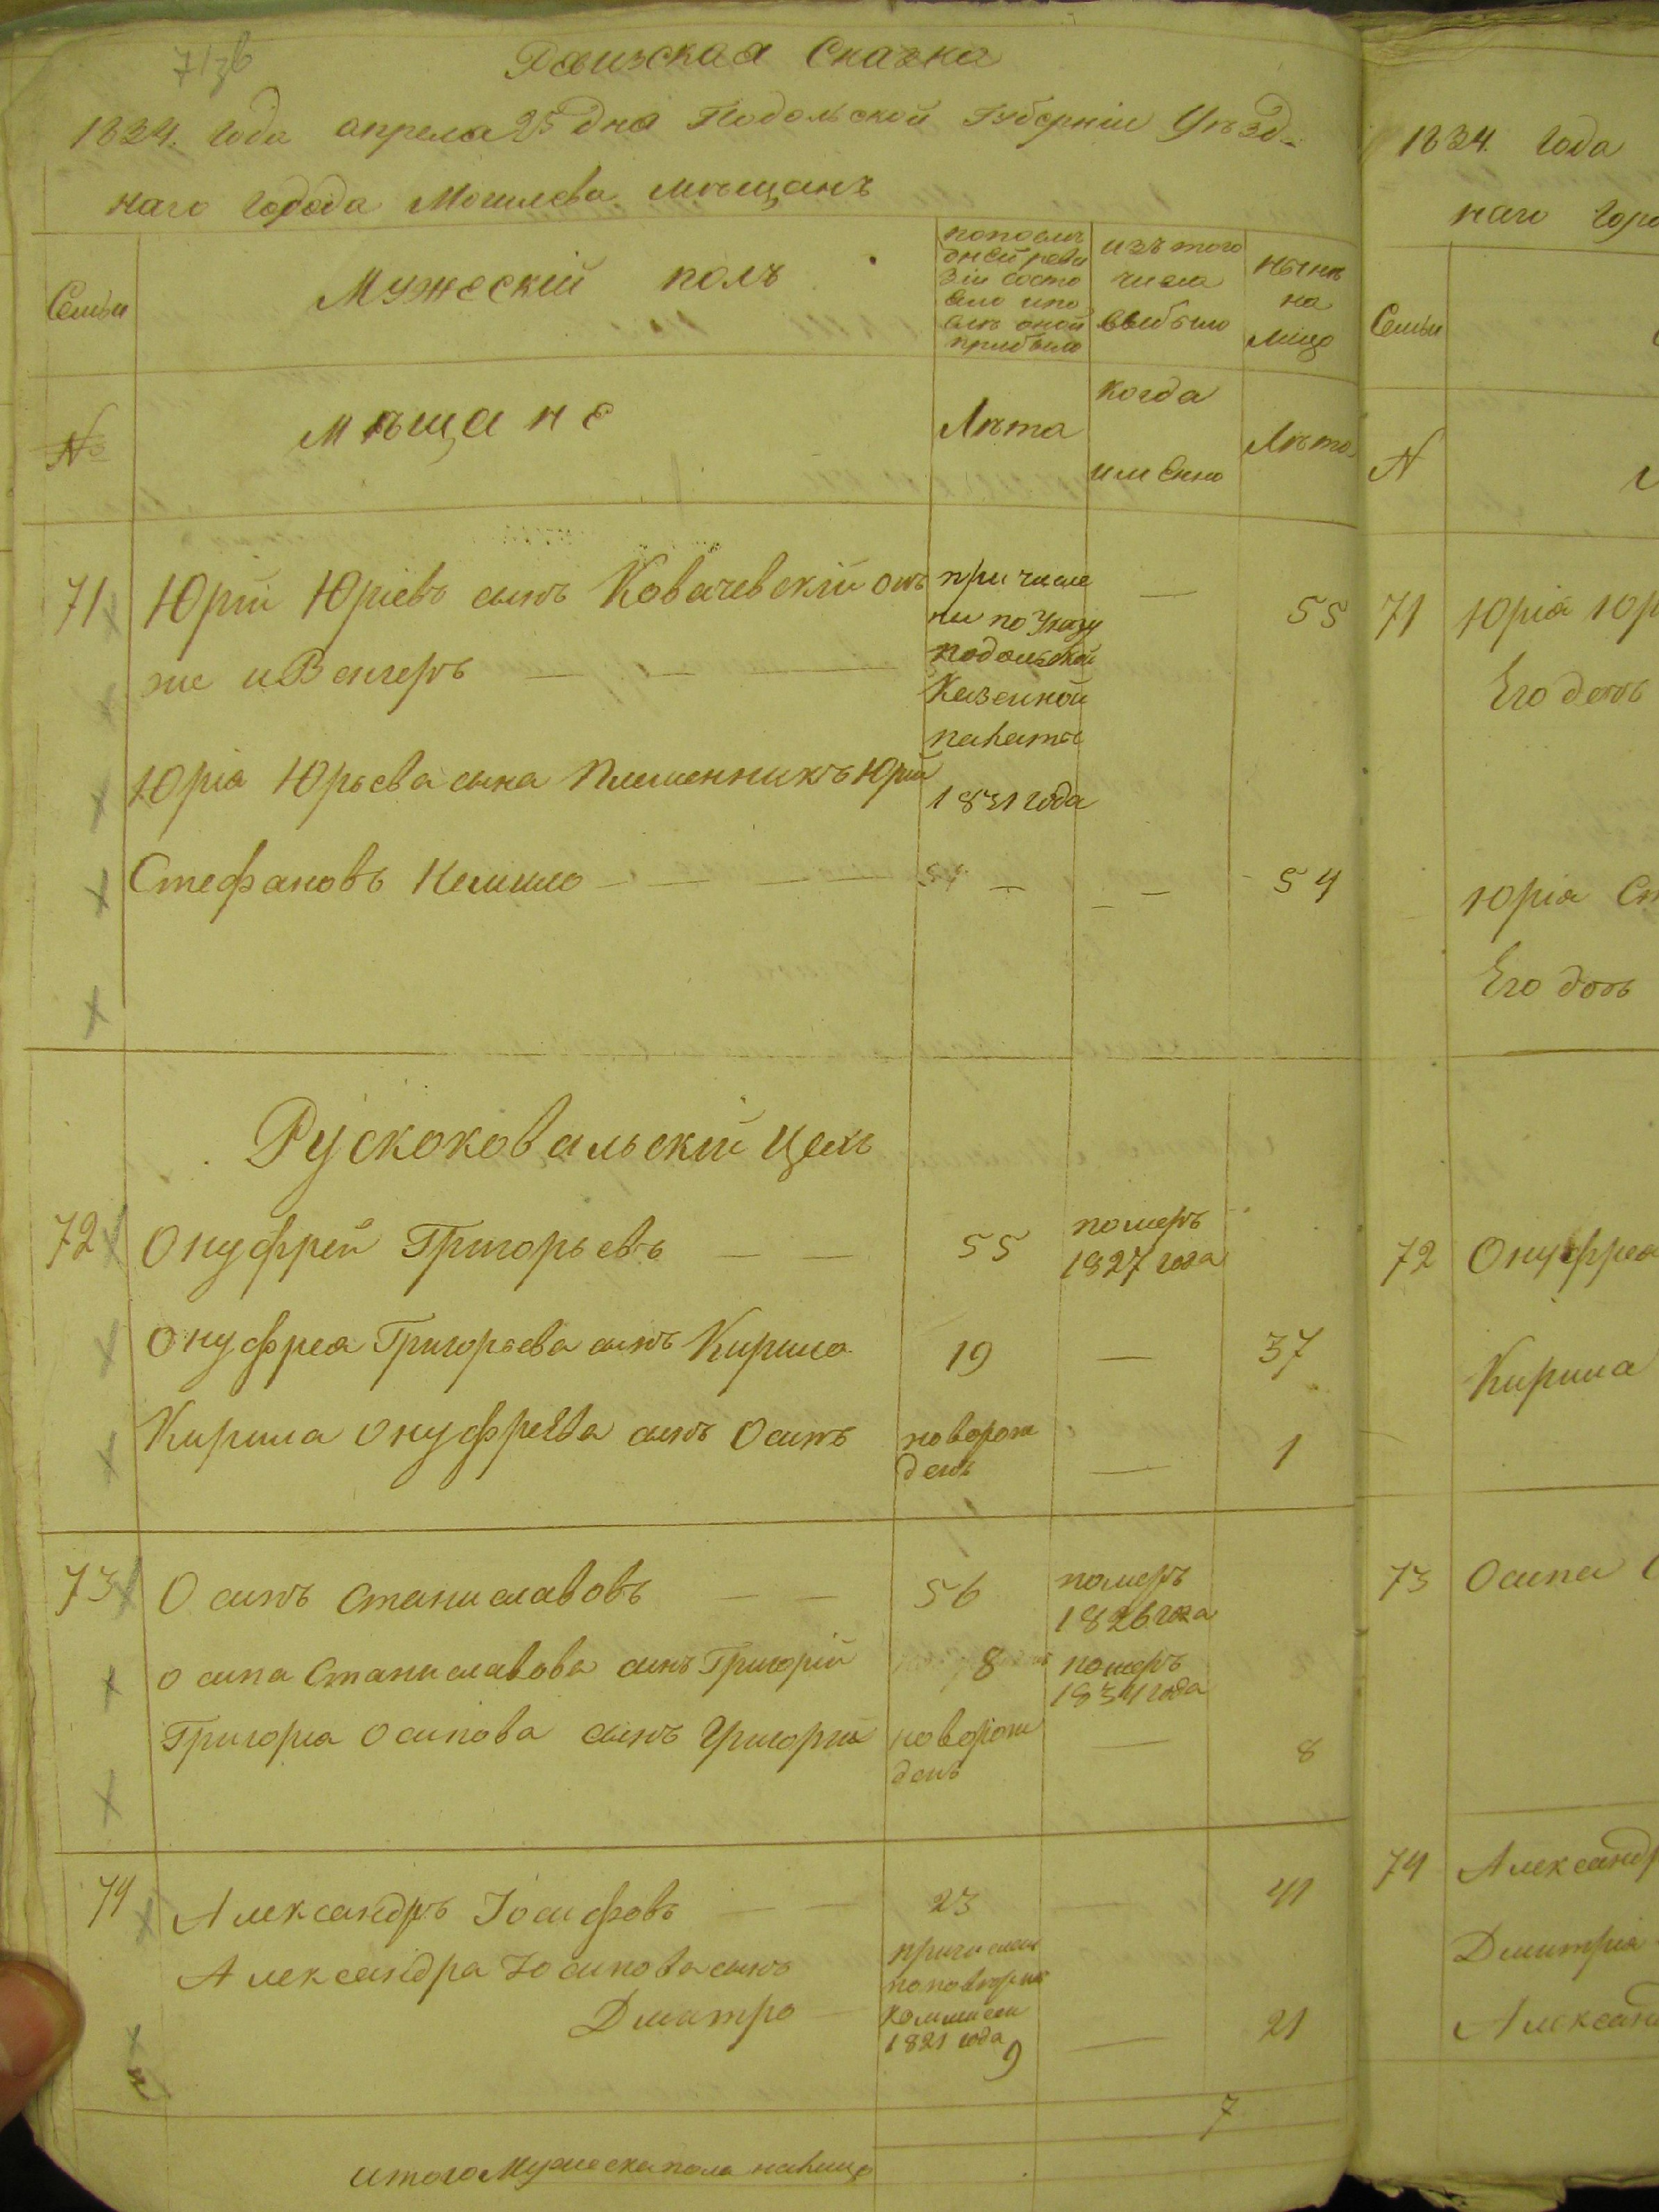 Ревизская Сказка
1834. года апреля 25 дня Подольской Губерніи Уѣзд-
наго Города Могилева мѣщанъ
Семьи
Мужескій полъ
по послѣ
дней реви
зіи состо
яло и по
слѣ оной
прибыло
изъ того
числа
выбыло
нынѣ
на
лицо
№
мѣщане
Лѣта
когда
именно
Лѣта
71
Юрій Юріевъ сынъ Ковачевскій онъ
же и Венгеръ
при числе
ны по Указу
подольской
Казенной
палаты
1831 года
55
Юрія Юрьева сына Племенникъ Юрій
Стефановъ
54
54
Рускоковальскій цехъ
72
Онуфрей Григорьевъ
55
померъ
1827 года
Онуфрея Григорьева сынъ Кирило
19
37
Кирила Онуфрева сынъ Осипъ
новорож
денъ
1
73
Осипъ Станиславовъ
56
померъ
1826 года
Осипа Станиславова сынъ Григорій
8
померъ
1834 года
Григорія Осипова сынъ Григорій
новорож
денъ
8
74
Александръ Іосифовъ
23
41
Александра Іосипова сынъ
Дмитро
причислен
Коммисіи
1821 года
9
21
7
итого Мужеска пола налицо
1834. Года
наго Горо
Семьи
N
71
Юрія Юр
Его дочь
Юрія Ст
Его дочь
72
Онуфрея
Кирила
73
Осипа С
74
Александр
Дмитрія
Алексан